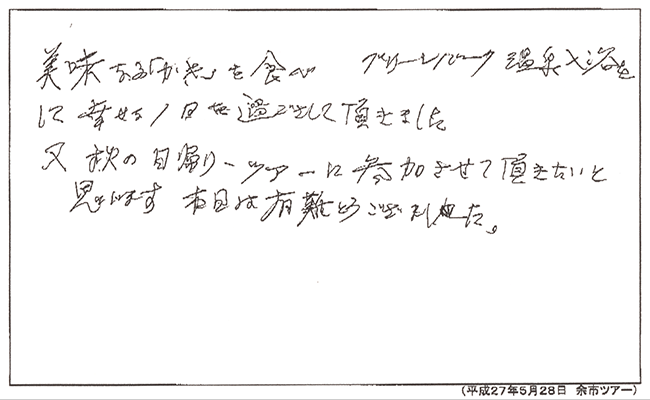 美味なる「かき」を食べ グリーンパーク温泉入浴を
して幸せな1日を過ごさして頂きました
又秋の日帰りツアーに参加させて頂きたいと
思います 本日は有難とうございました。
(平成27年5月28日 余市ツアー)